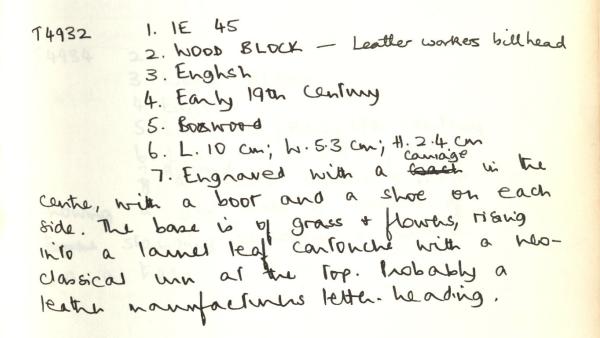 T4932 1. IE 45
2. WOOD BLOCK — Leather workers billhead
3. English
4. Early 19th Century
5. Boxwood
6. L. 10 cm; W. 5.3 cm; H. 2.4 cm
7. Engraved with a coach carriage in the
centre, with a boot and a shoe on each
side. The base is of grass + flowers, rising
into a laurel leaf cartouche with a neo-
classical urn at the top. Probably a
leather manufacturers letter-heading.